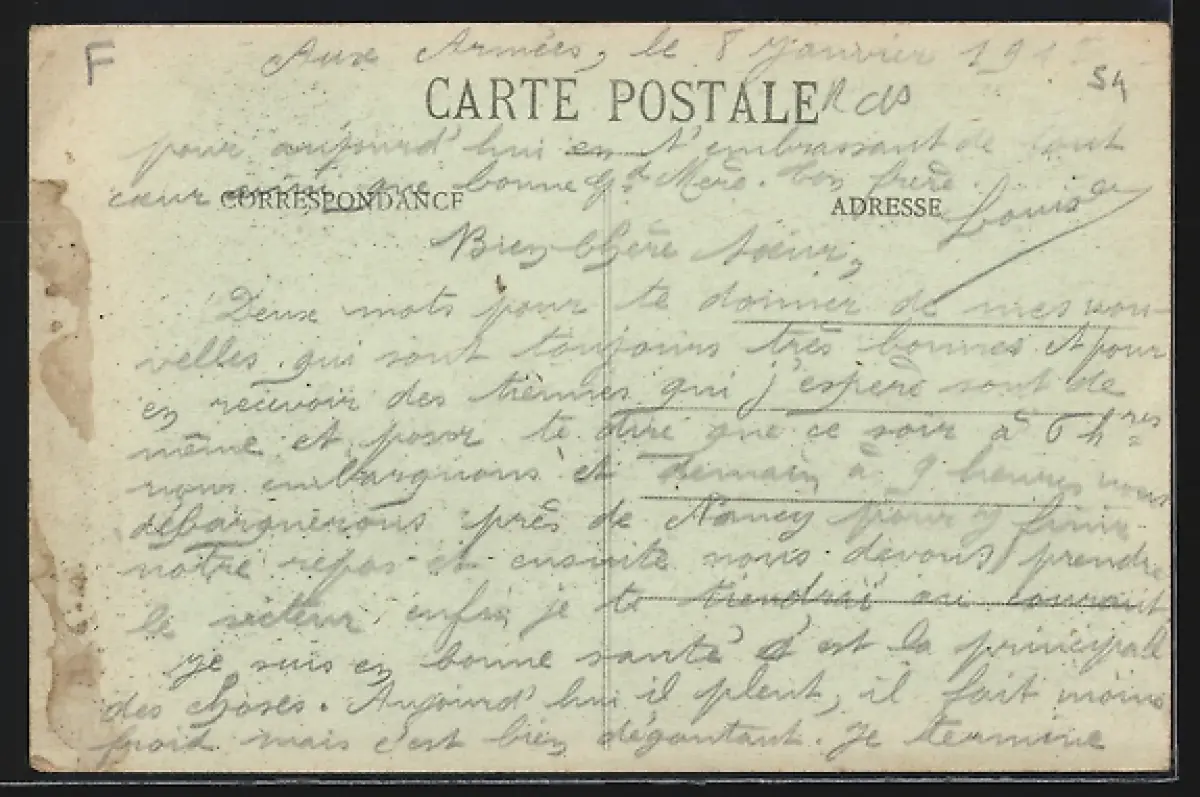 F
Aux Armées, le 8 Janvier 191
54
CARTE POSTALE
pour aujourd'hui en t'embrassant de tout
cœur ainsi que bonne Gd Mère. Ton frère
CORRESPONDANCE
ADRESSE
Louis
Bien Chère Sœur,
Deux mots pour te donner de mes nou-
velles qui sont toujours très bonnes et pour
en recevoir des tiennes qui j'espère sont de
même et pour te dire que ce soir à 6 hres
nous embarquons et demain à 9 heures nous
débarquerons près de Nancy pour y finir
notre repos et ensuite nous devons prendre
le secteur enfin je te tiendrai au courant
Je suis en bonne santé c'est la principale
des choses. Aujourd'hui il pleut, il fait moins
froid mais c'est bien dégoutant. Je termine